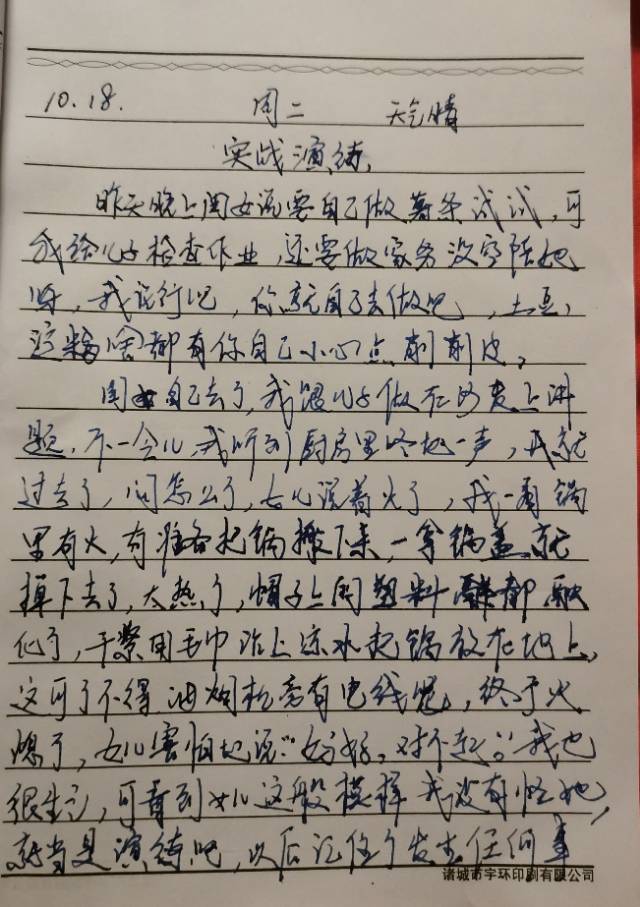 10.18. 周二 天气晴
实战演练
昨天晚上闺女说要自己做薯条试试,可
我给儿子检查作业,还要做家务没空陪她
呀,我说行吧,你就自己去做吧,土豆,
淀粉啥都有你自己小心点削削皮。
闺女自己去了,我跟儿子做在沙发上讲
题,不一会儿,我听到厨房里咚地一声,我就
过去了,问怎么了,女儿说着火了,我一看锅
里有火,有准备把锅搬下来,一拿锅盖就
掉下去了,太热了,帽子上的塑料都融
化了,干紧用毛巾沾上凉水把锅放在地上,
这可了不得油烟机旁有电线呢,终于火
熄了,女儿害怕地说:"妈妈,对不起。"我也
很生气,可看到女儿这般模样我没有怪她,
就当是演练吧,以后记住了发生任何事
诸城市宇环印刷有限公司